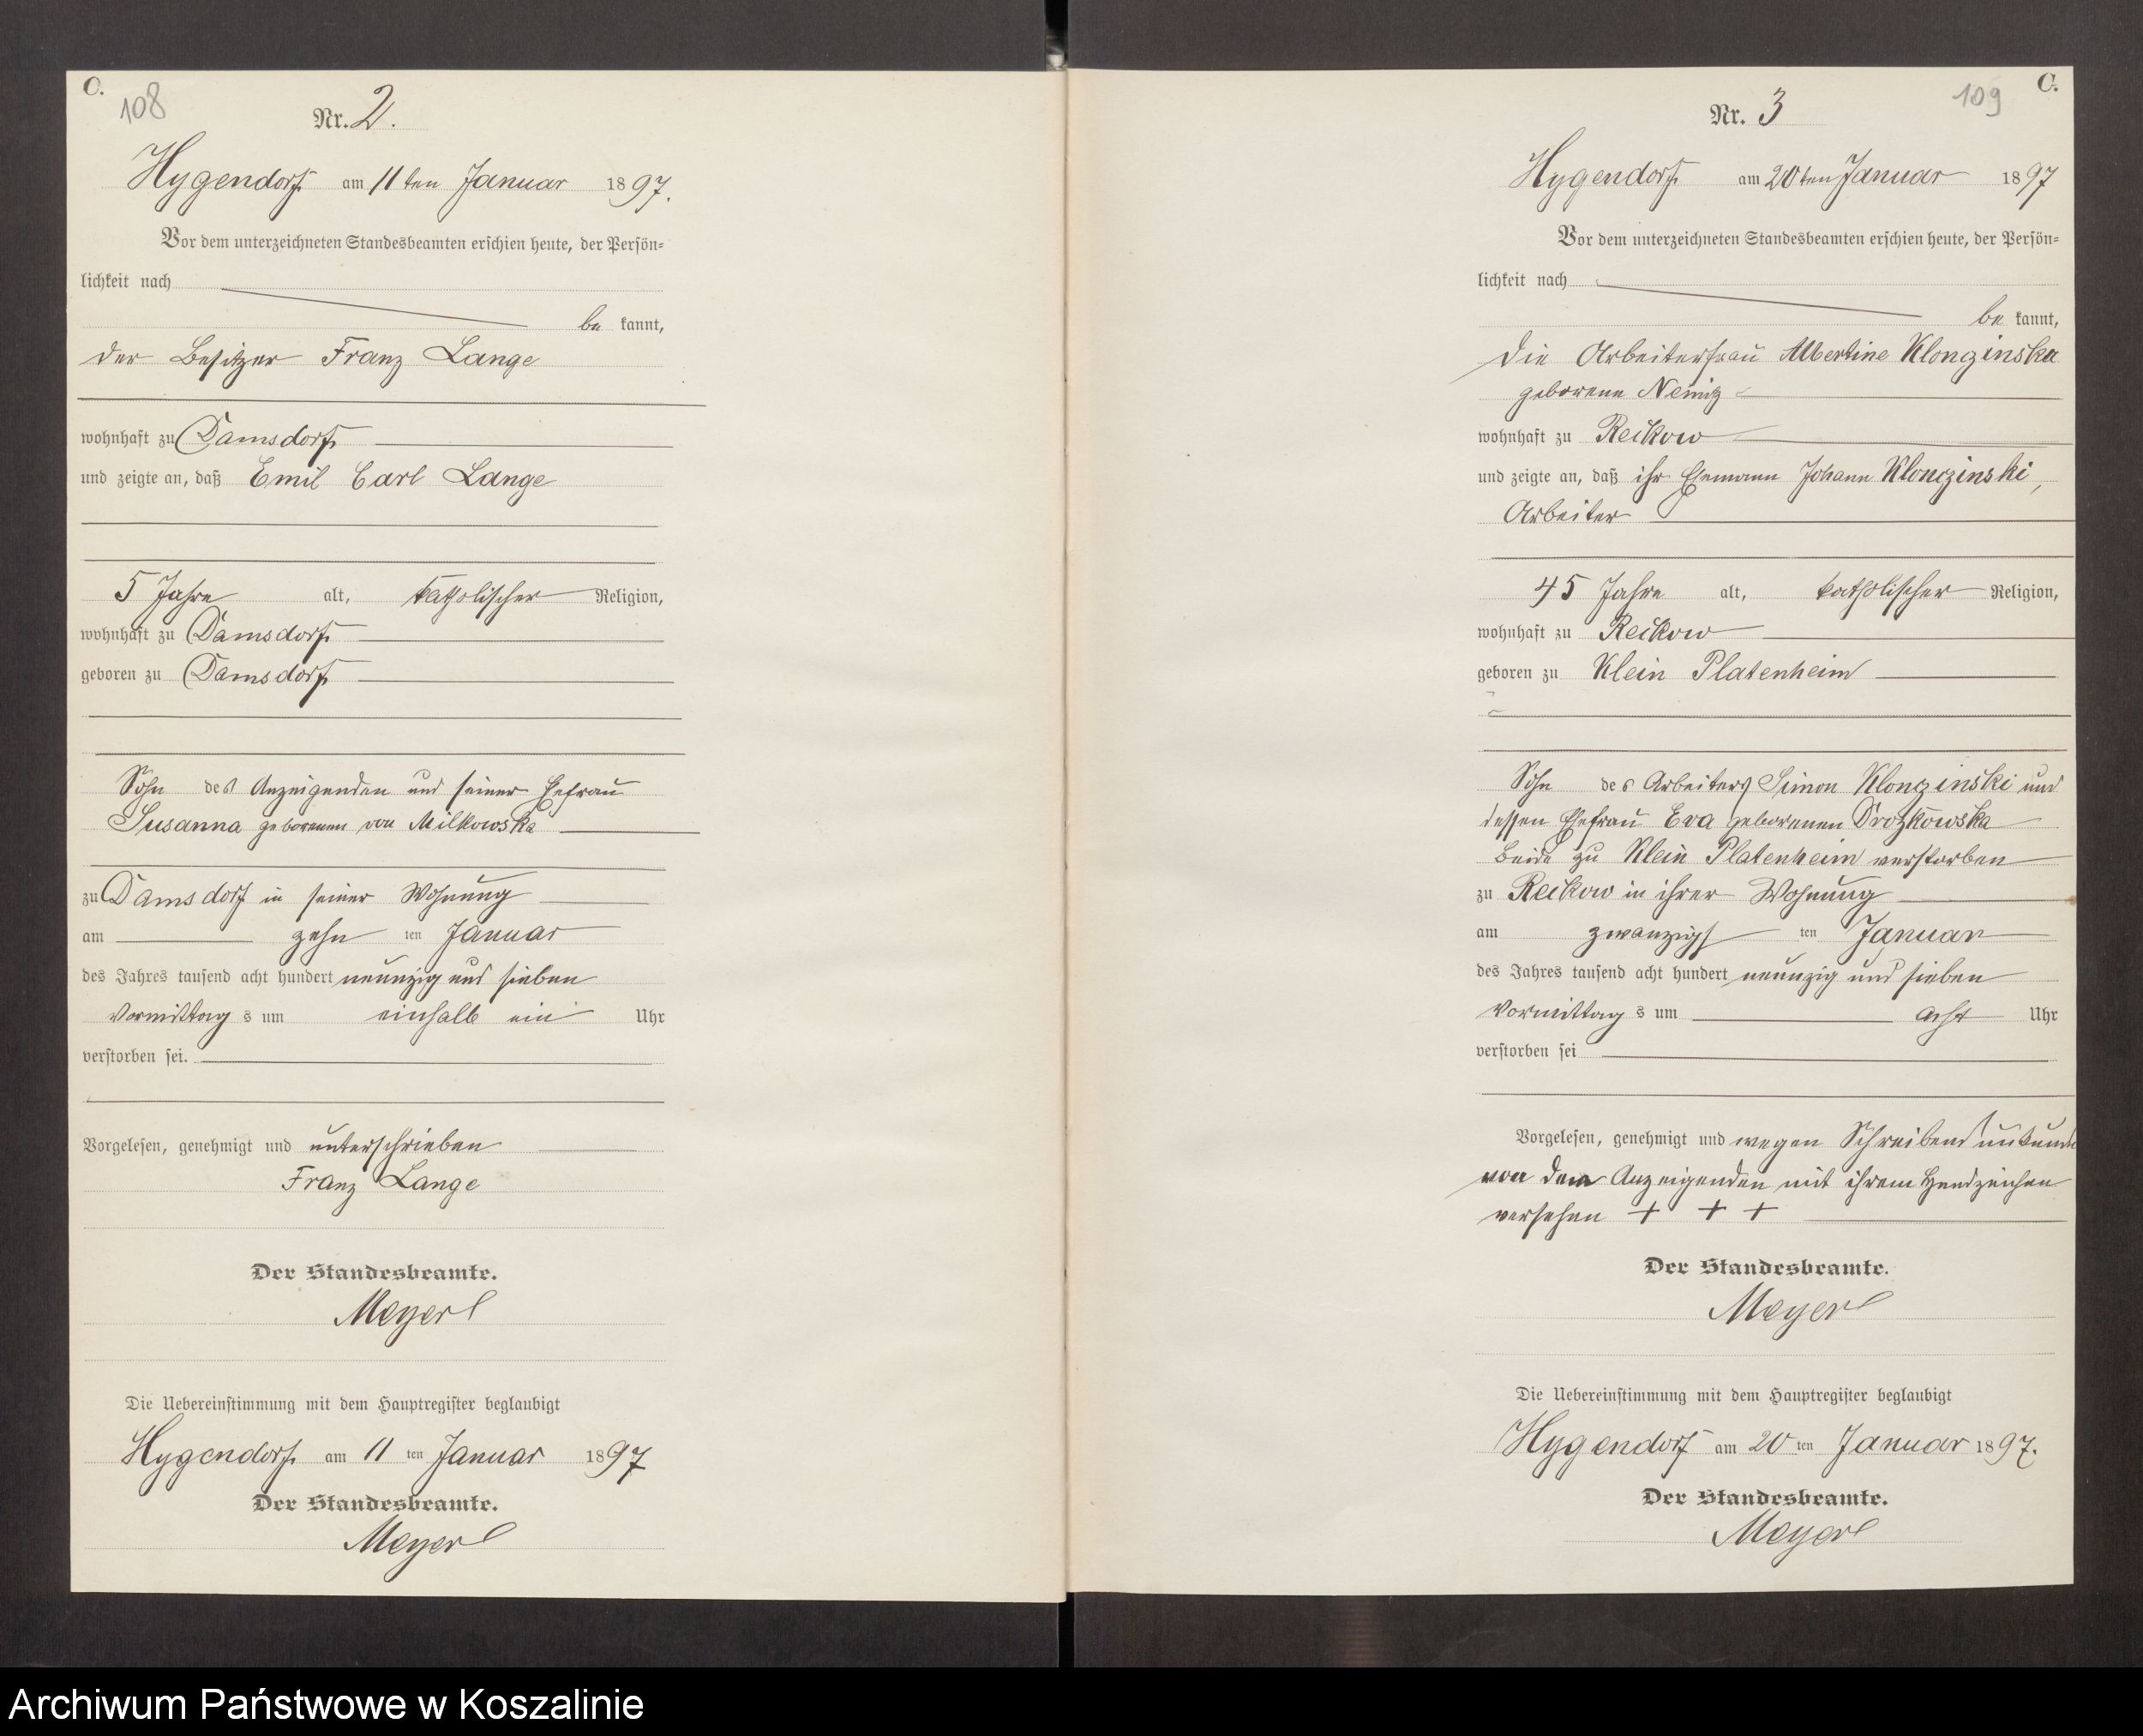 C.
108
Nr. 2.
Hygendorf am 11ten Januar 1897.
Vor dem unterzeichneten Standesbeamten erschien heute, der Persön-
lichkeit nach
be kannt,
der Besitzer Franz Lange
wohnhaft zu Damsdorf
und zeigte an, daß Emil Carl Lange
5 Jahre alt, katholischer Religion,
wohnhaft zu Damsdorf
geboren zu Damsdorf
Sohn des Anzeigenden und seiner Ehefrau
Susanna geborenen von Milkowska
zu Damsdorf in seiner Wohnung
am zehn ten Januar
des Jahres tausend acht hundert neunzig und sieben
Vormittag s um einhalb ein Uhr
verstorben sei.
Vorgelesen, genehmigt und unterschrieben
Franz Lange
Der Standesbeamte.
Meyer
Die Uebereinstimmung mit dem Hauptregister beglaubigt
Hygendorf am 11 ten Januar 1897
Der Standesbeamte.
Meyer
109
C.
Nr. 3
Hygendorf am 20ten Januar 1897
Vor dem unterzeichneten Standesbeamten erschien heute, der Persön-
lichkeit nach
be kannt,
die Arbeiterfrau Albertine Klonczinska
geborene Nemitz
wohnhaft zu Reckow
und zeigte an, daß ihr Ehemann Johann Klonczinski,
Arbeiter
45 Jahre alt, katholischer Religion,
wohnhaft zu Reckow
geboren zu Klein Platenheim
Sohn des Arbeiters Simon Klonczinski und
dessen Ehefrau Eva geborenen Drozkowska
beide zu Klein Platenheim verstorben
zu Reckow in ihrer Wohnung
am zwanzigs ten Januar
des Jahres tausend acht hundert neunzig und sieben
Vormittag s um acht Uhr
verstorben sei
Vorgelesen, genehmigt und wegen Schreibensunkunde
von dem Anzeigenden mit ihrem Handzeichen
versehen + + +
Der Standesbeamte.
Meyer
Die Uebereinstimmung mit dem Hauptregister beglaubigt
Hygendorf am 20 ten Januar 1897.
Der Standesbeamte.
Meyer
Archiwum Państwowe w Koszalinie